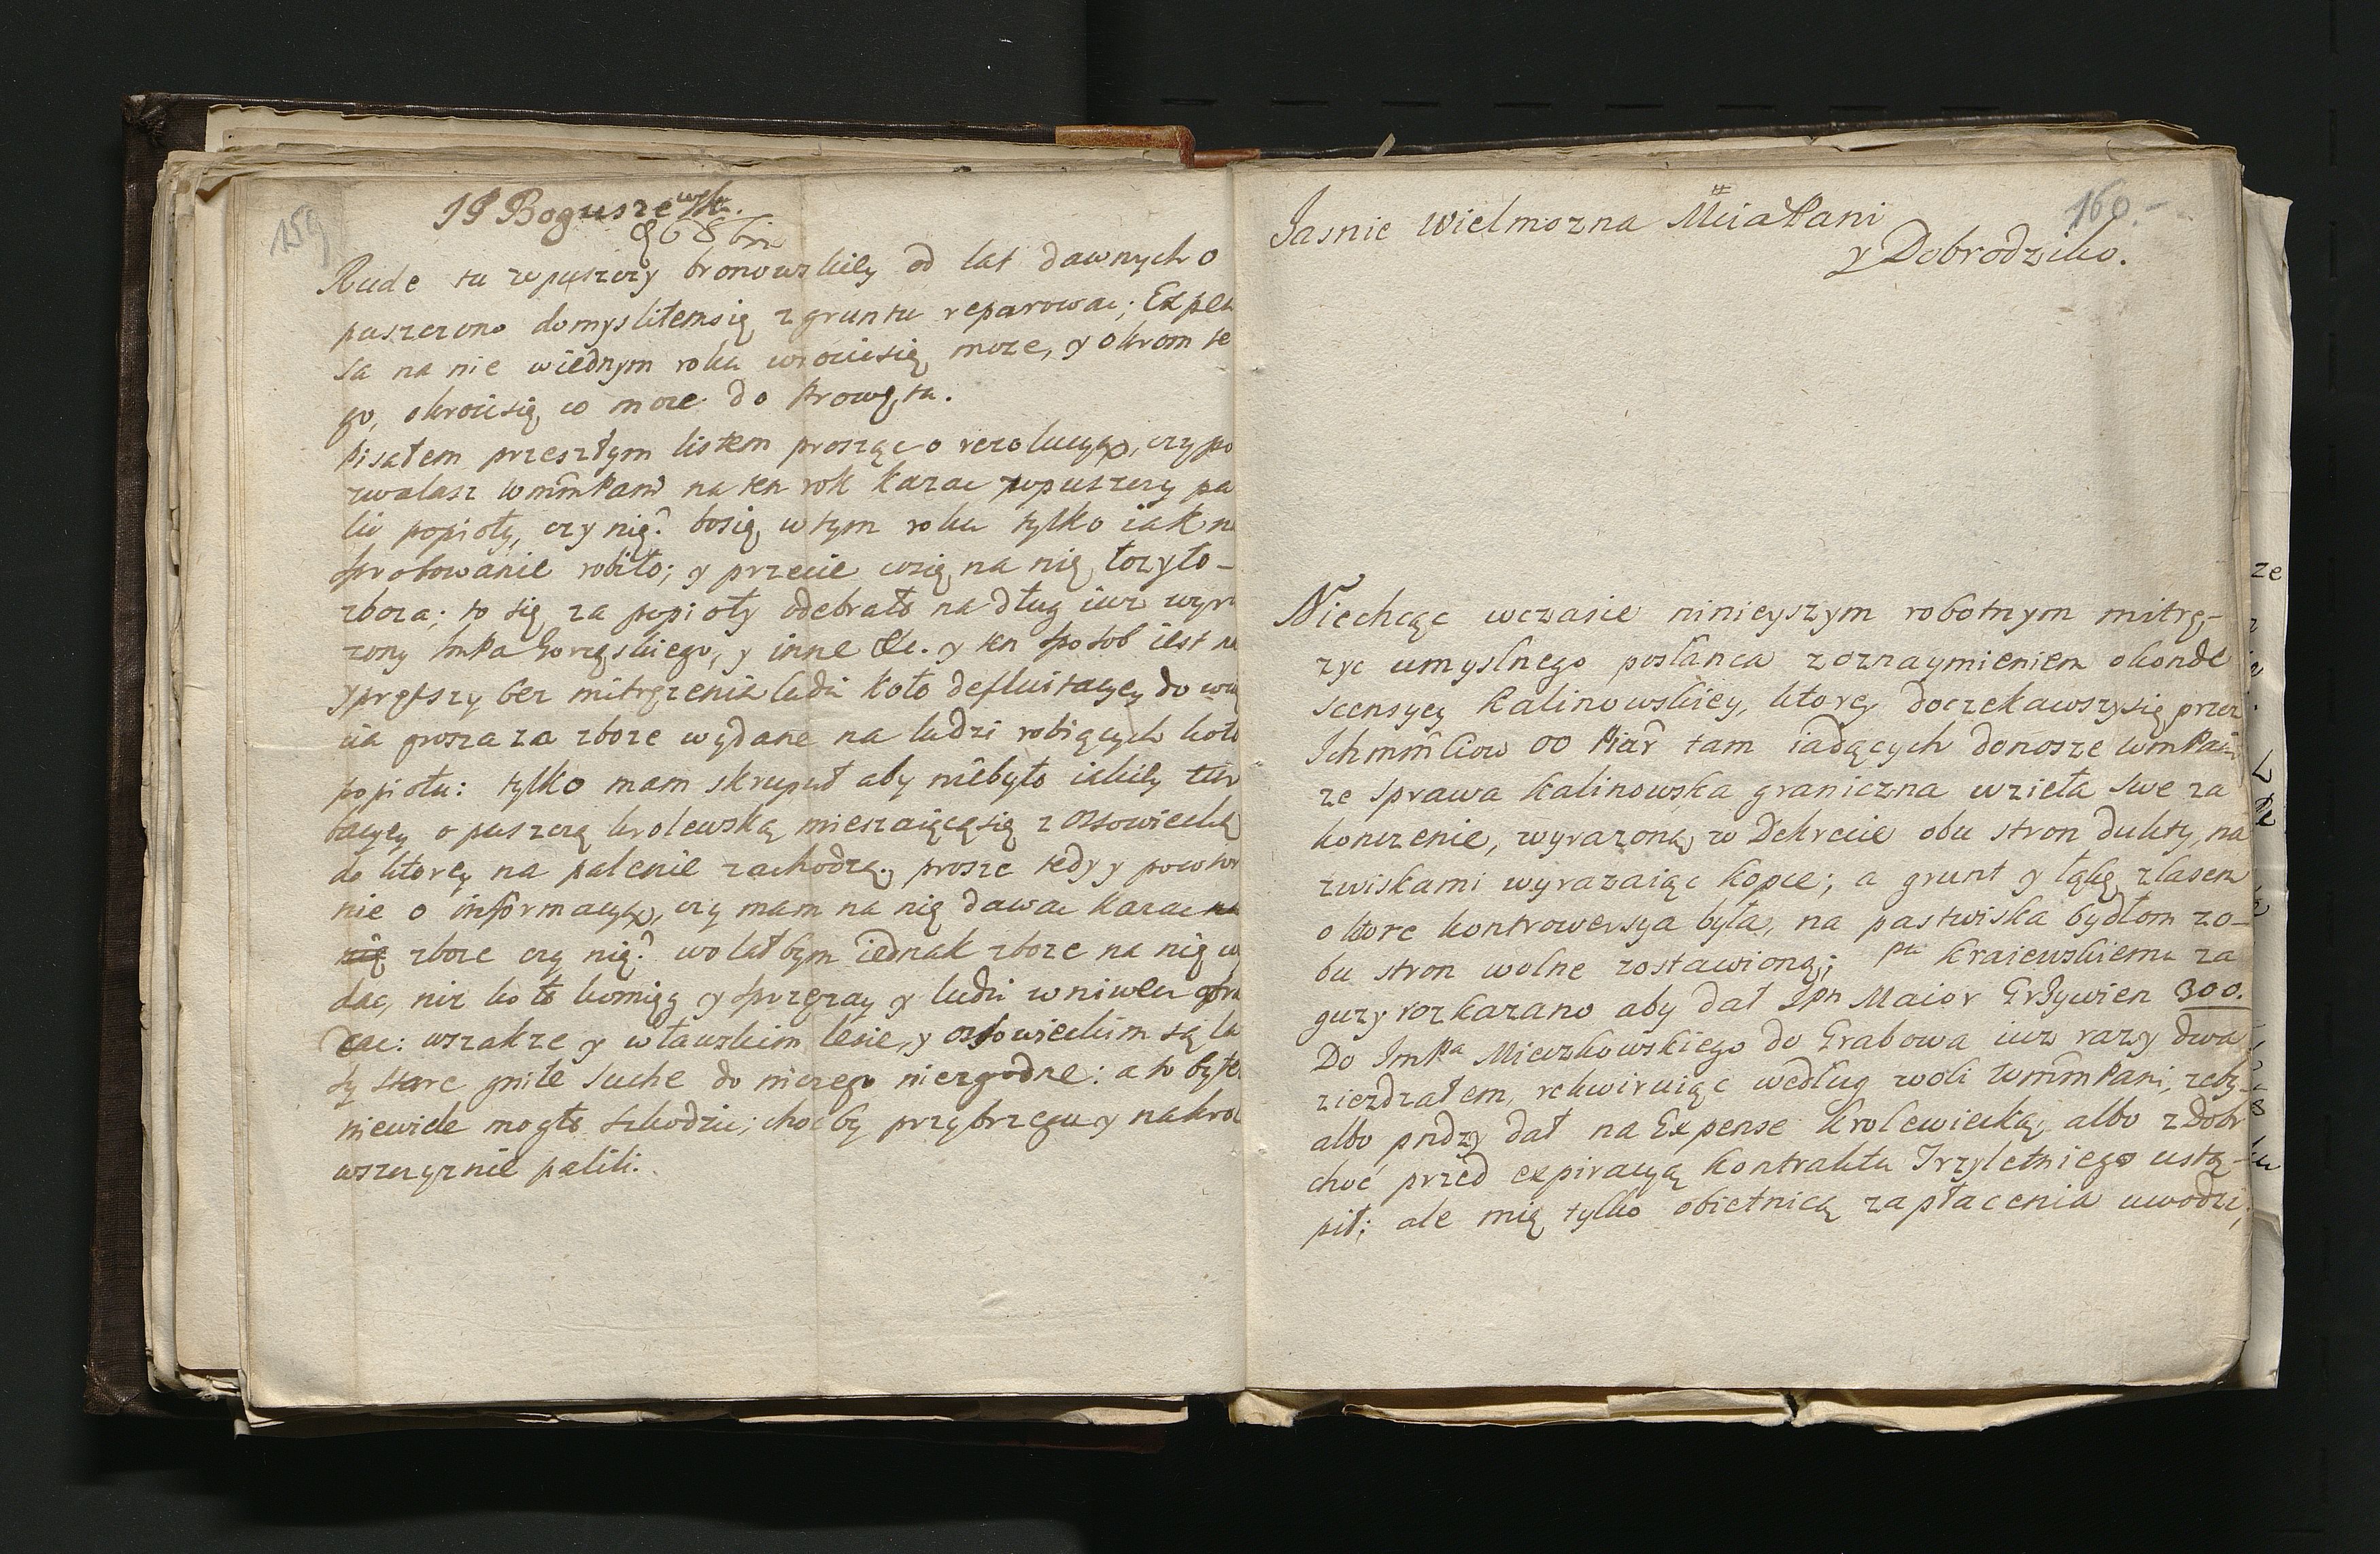 159
JP Boguszewsk.
d 6 8bris
Rude tu w puszczy bronowskiey od lat dawnych o
puszczono domyslitemsię z gruntu reparowac; Expen
sa na nie wiednym roku wrociesię moze, y okrom te
go, okrocisię co moze do Prowętu.
Pisałem przeszłym listem prosząc o rezolucyą, czy po
zwalasz WmmPani na ten rok kazac w puszczy pa
lic popioły, czy nię? bosię w tym roku tylko iak na
sprobowanie robiło; y przecie cosię na nię łozyło
zboza; to się za popioły odebrało na dług iuz
zony ImPa Gorzęskiego, y inne &c. y ten sposob iest na
ysprętszy bez mitręzenia ludzi koło defluitacyey do
cia grosza za zboze wydane na ludzi robiących koło
popiołu: tylko mam skrupuł aby niebyło iakiey tur
bacyey o puszczą krolewską mieszaiącąsię z Ossowiecką
do ktorey na palenie zachodzą, prosze tedy y powtor
nie o informacyą, czy mam na nię dawac kazac na
nię zboze czy nię? wolałbym iednak zboze na nię wy
dac, niz koło komięg y sprzęzay y ludzi wniwecz obra
cac: wszakze y włauskim lesie, y ossowieckim są la
sy stare gniłe suche do niczego niezgodne: a to by te
niewiele mogło szkodzic; choćby przybrzegu y nakroc
wszczyznie palili.
160.
Jasnie Wielmozna Mcia Pani
y Dobrodziko.
Niechcąc wczasie ninieyszym robotnym mitrę-
zyc umyslnego posłanca z oznaymieniem okonde
scensyey Kalinowskiey, ktorey doczekawszysię przez
Ichmmciow OO Piar tam iadących donosze WmPani
ze sprawa Kalinowska graniczna wzieła swe za
konczenie, wyrazoną w Dekrecie obu stron dukty, na
zwiskami wyrazaiąc kopce; a grunt y łąkę zlasem
o ktore kontrowersya była, na pastwiska bydłom zo-
bu stron wolne zostawioną; Pu Kraiewskiemu za
guzy rozkazano aby dał Jpn Maior Grzywien 300.
Do ImPa Mieczkowskiego do Grabowa iuz razy dwa
ziezdzałem, rekwiruiąc według woli WmmPani, zeby-
albo pndzy dał na Expense Krolewiecką, albo z Dobr
choć przed expiracyą Kontraktu Trzyletniego ustą-
pił; ale mię tylko obietnicą zapłacenia uwodzi,